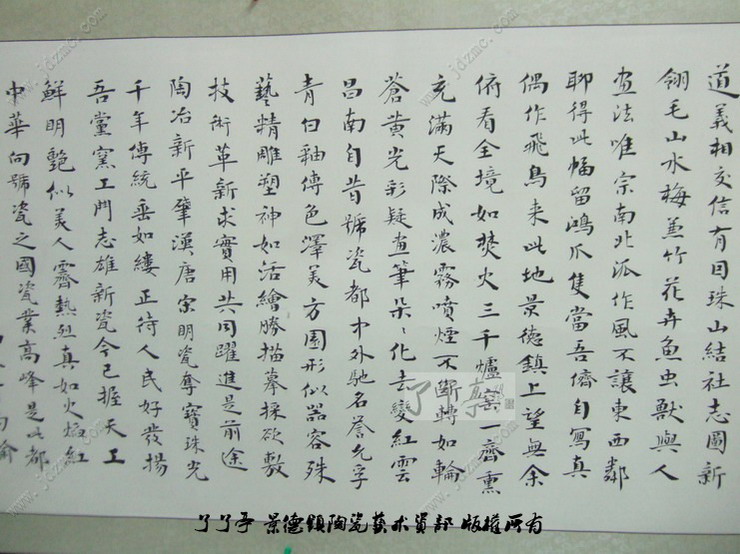 道義相交信有因珠山結社志圖新
翎毛山水梅兼竹花卉魚虫獸與人
畫法唯宗南北派作風不讓東西鄰
聊得此幅留鴻爪隻當吾儕自寫真
偶作飛鳥来此地景德鎮上望無余
俯看全境如焚火三千爐窑一齊熏
充滿天際成濃霧噴煙不斷轉如輪
蒼黃光彩疑畫筆朵〻化去變紅雲
昌南自昔號瓷都中外馳名譽允孚
青白釉傳色澤美方圓形似器容殊
藝精雕塑神如活繪勝描摹採欲敷
技術革新求實用共同躍進是前途
陶冶新平肇漢唐宗明瓷奪寶珠光
千年傳統垂如縷正待人民好發揚
吾堂窯工門志雄新瓷今已握天工
鮮明艷似美人霽熱烈真如火焰紅
中華向號瓷之國瓷業高峰是此都
了了亭
了了亭 景德镇陶瓷艺术资部 版權所有
www.jdzmc.com